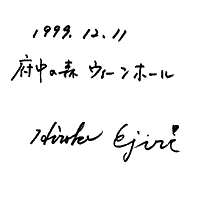 1999. 12. 11
府中の森 ウィーンホール
Hiroko Ejiri